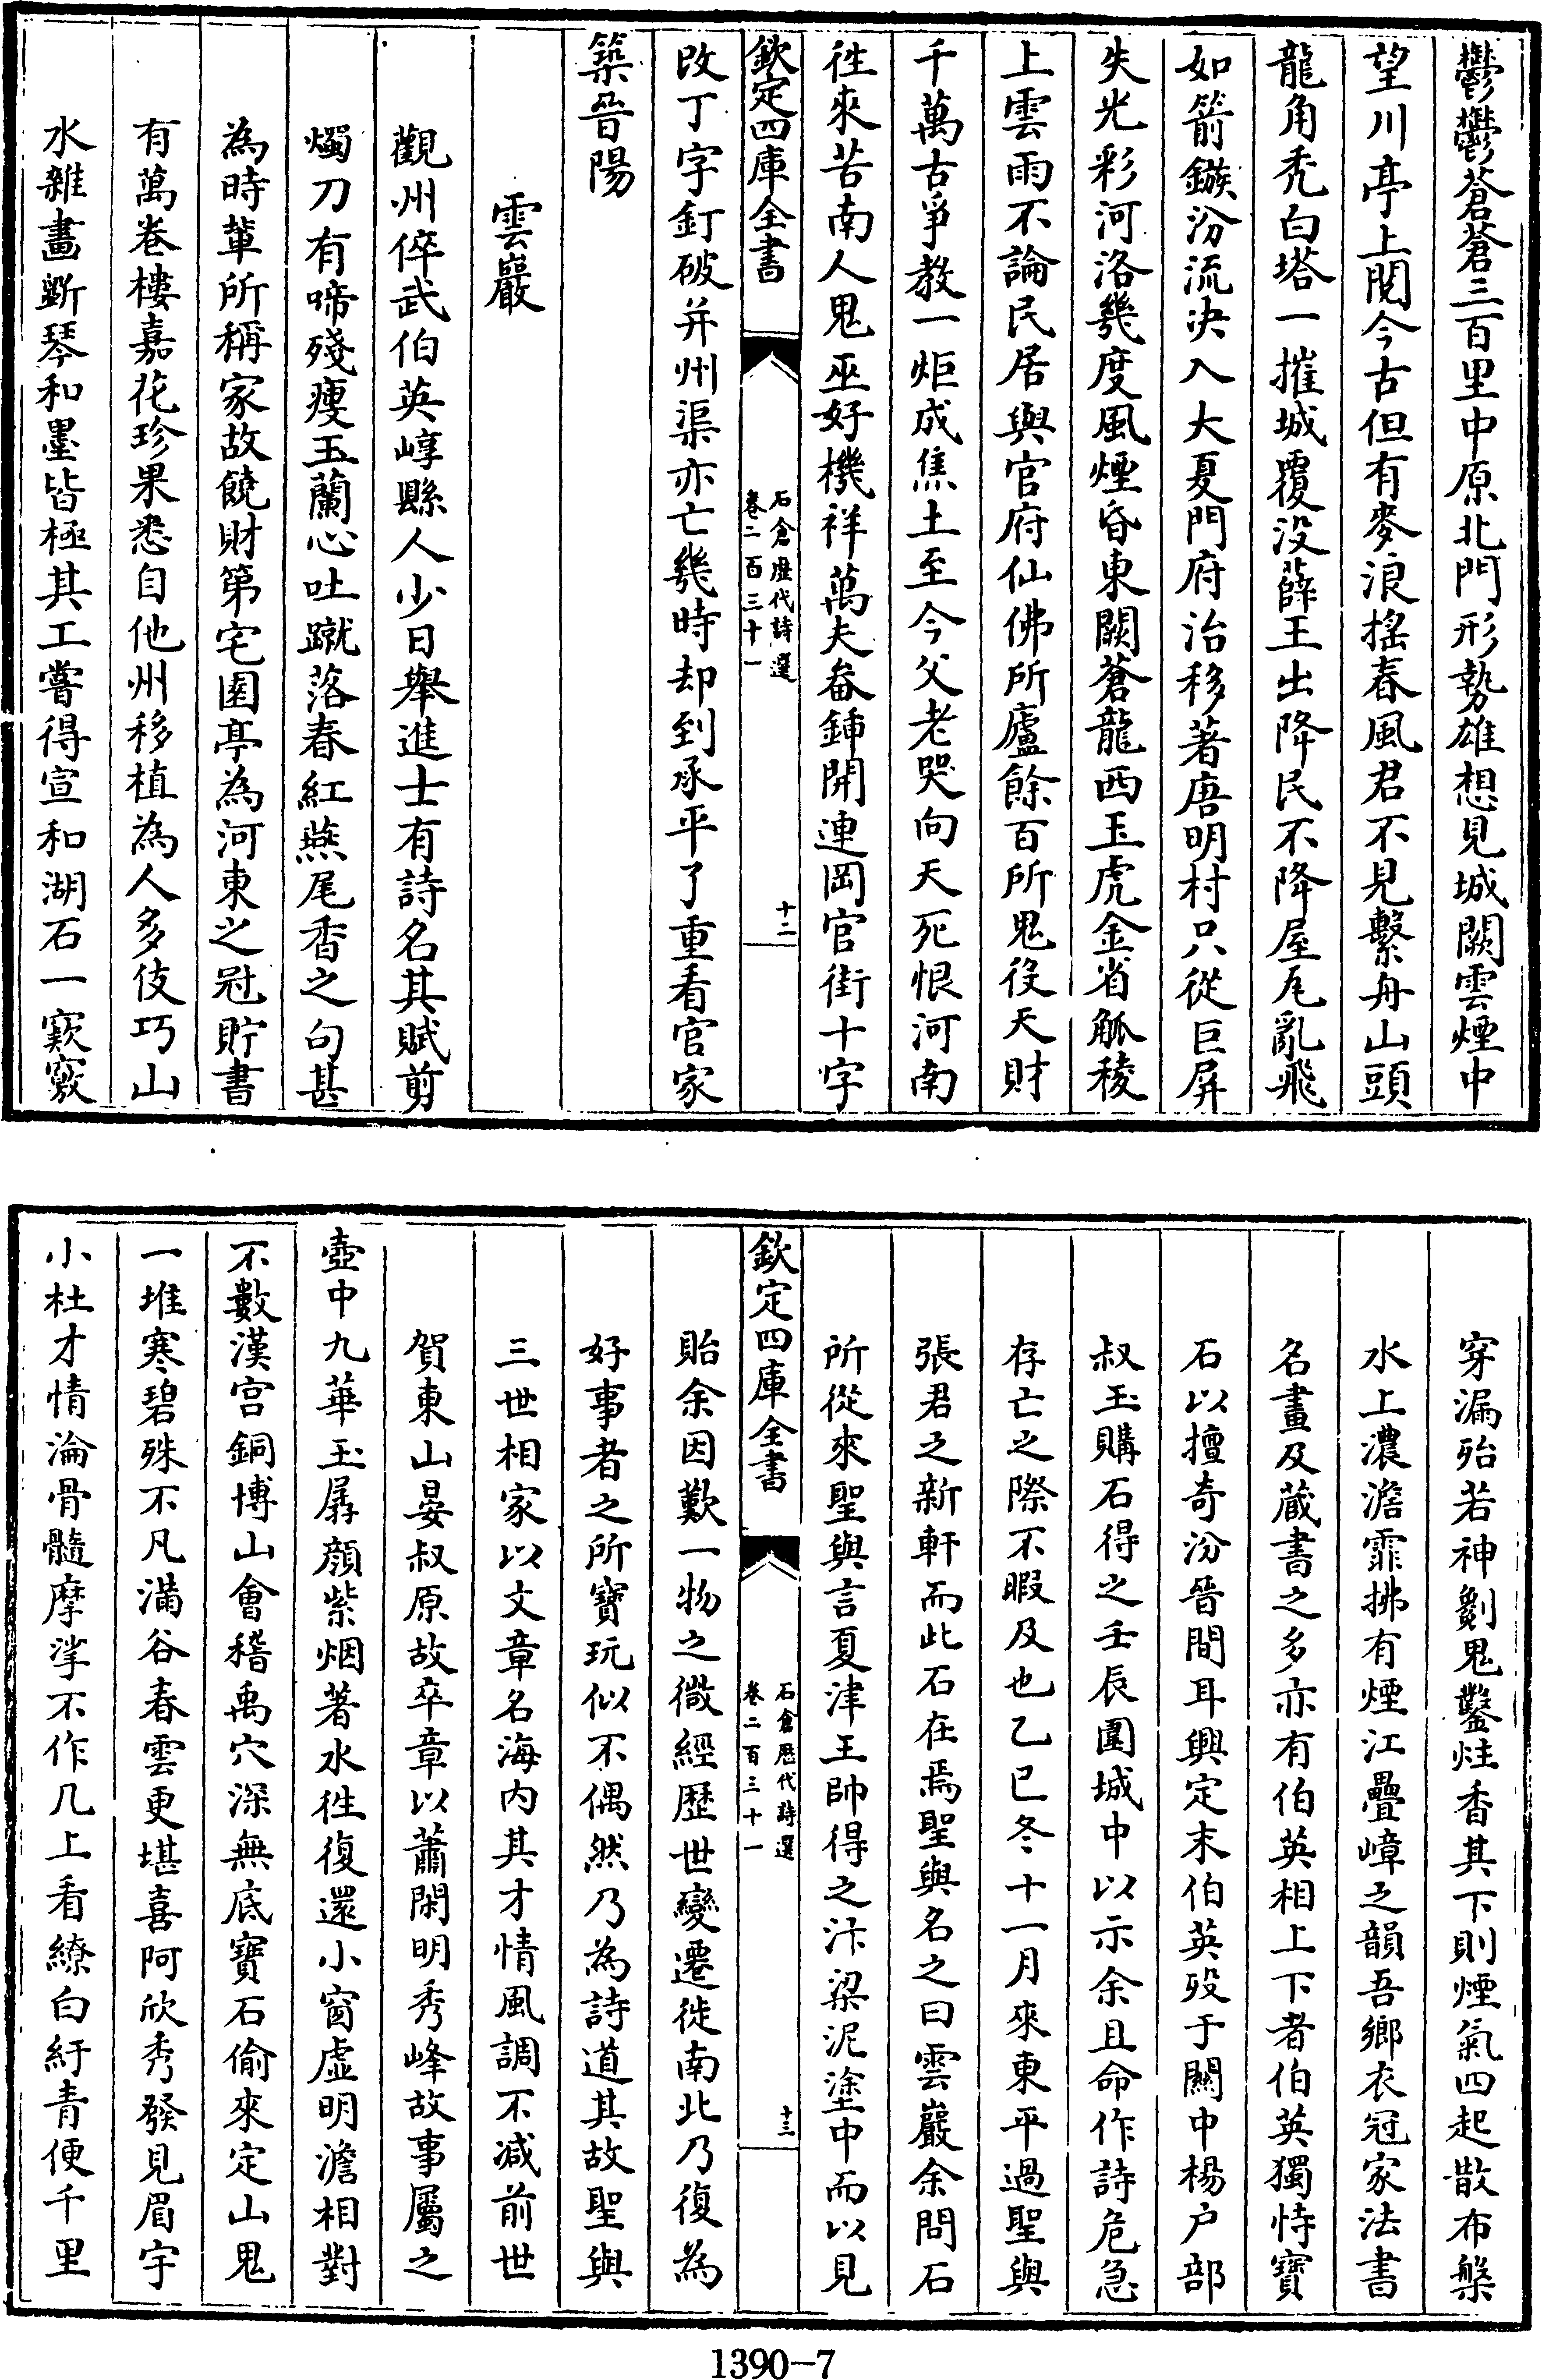 鬱鬱蒼蒼三百里中原北門形勢雄想見城闕雲煙中
望川亭上閱今古但有麥浪搖春風君不見繫舟山頭
龍角秃白塔一摧城覆没薛王出降民不降屋瓦亂飛
如箭鏃汾流決入大夏門府治移著唐明村只從巨屏
失光彩河洛幾度風煙昏東闕蒼龍西玉虎金雀觚稜
上雲雨不論民居與官府仙佛所廬餘百所鬼役天財
千萬古爭教一炬成焦土至今父老哭向天死恨河南
徃來苦南人鬼巫好禨祥萬夫畚鍤開連岡官街十字
欽定四庫全書
石倉歷代詩選
卷二百三十一
十二
改丁字釘破并州渠亦亡幾時却到承平了重看官家
築晉陽
雲巖
觀州倅武伯英崞縣人少日舉進士有詩名其賦剪
燭刀有啼殘瘦玉蘭心吐蹴落春紅燕尾香之句甚
為時輩所稱家故饒財第宅園亭為河東之冠貯書
有萬卷樓嘉花珍果悉自他州移植為人多伎巧山
水雜畫斲琴和墨皆極其工嘗得宣和湖石一窾竅
穿漏殆若神劖鬼鑿炷香其下則煙氣四起散布槃
水上濃澹霏拂有煙江疊嶂之韻吾鄉衣冠家法書
名畫及藏書之多亦有伯英相上下者伯英獨恃寶
石以擅奇汾晉間耳興定末伯英殁于關中楊户部
叔玉購石得之壬辰圍城中以示余且命作詩危急
存亡之際不暇及也乙巳冬十一月來東平過聖與
張君之新軒而此石在焉聖與名之曰雲巖余問石
所從來聖與言夏津王帥得之汴梁泥塗中而以見
欽定四庫全書
石倉歷代詩選
卷二百三十一
十三
貽余因歎一物之微經歷世變遷徙南北乃復為
好事者之所寶玩似不偶然乃為詩道其故聖與
三世相家以文章名海内其才情風調不减前世
賀東山晏叔原故卒章以蕭閑明秀峰故事屬之
壺中九華玉孱顔紫烟著水徃復還小窗虛明澹相對
不數漢宫銅博山會稽禹穴深無底寶石偷來定山鬼
一堆寒碧殊不凡滿谷春雲更堪喜阿欣秀發見眉宇
小杜才情淪骨髓摩挲不作几上看繚白紆青便千里
1390-7